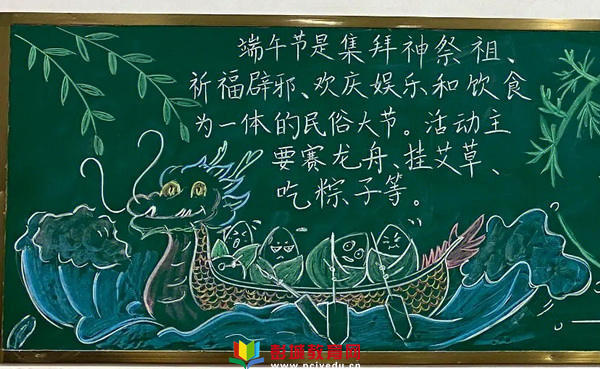 端午节是集拜神祭祖、
祈福辟邪、欢庆娱乐和饮食
为一体的民俗大节。活动主
要赛龙舟、挂艾草、
吃粽子等。
彭城教育网
www.pcjyedu.cn